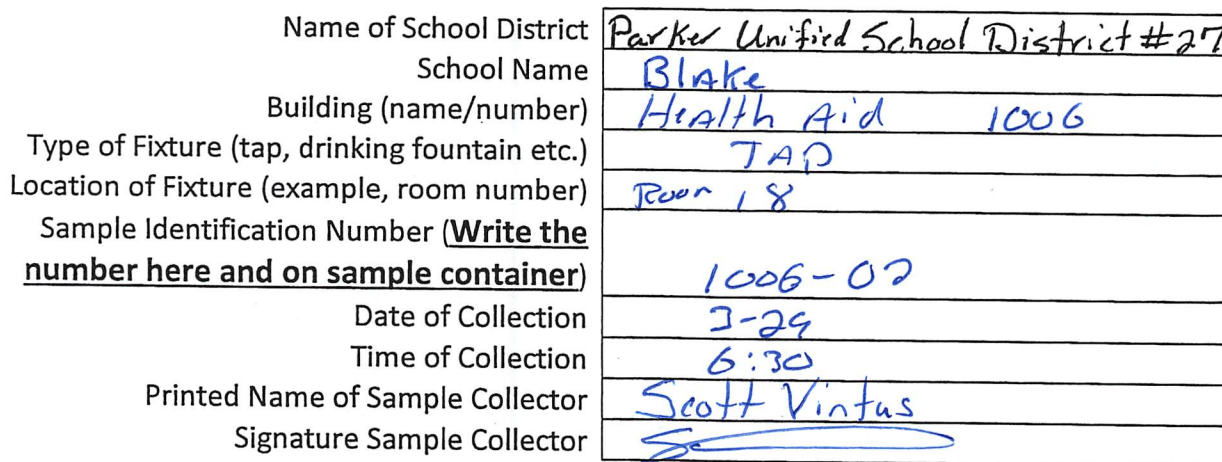 Name of School District Parker Unified School District #27
School Name Blake
Building (name/number) Health Aid 1006
Type of Fixture (tap, drinking fountain etc.) TAP
Location of Fixture (example, room number) Room 18
Sample Identification Number (Write the
number here and on sample container) 1006-02
Date of Collection 3-29
Time of Collection 6:30
Printed Name of Sample Collector Scott Vintus
Signature Sample Collector